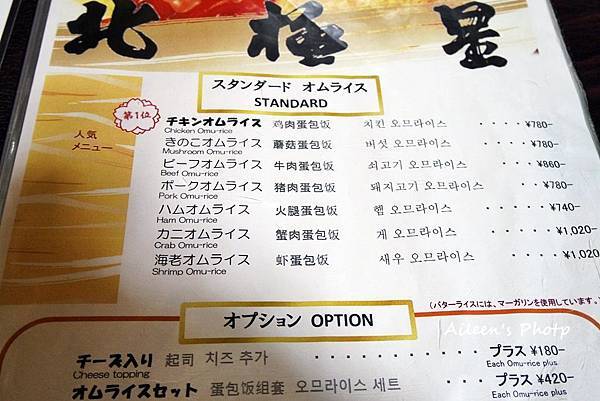 北極星
スタンダード オムライス
STANDARD
人気
メニュー
第1位
チキンオムライス 鸡肉蛋包饭 치킨 오므라이스 ・・・・¥780-
Chicken Omu-rice
きのこオムライス 蘑菇蛋包饭 버섯 오므라이스 ・・・・・¥780-
Mushroom Omu-rice
ビーフオムライス 牛肉蛋包饭 쇠고기 오므라이스 ・・・・¥860-
Beef Omu-rice
ポークオムライス 猪肉蛋包饭 돼지고기 오므라이스 ・・・・¥780-
Pork Omu-rice
ハムオムライス 火腿蛋包饭 햄 오므라이스 ・・・・・¥740-
Ham Omu-rice
カニオムライス 蟹肉蛋包饭 게 오므라이스 ・・・・・¥1,020-
Crab Omu-rice
海老オムライス 虾蛋包饭 새우 오므라이스 ・・・・¥1,020
Shrimp Omu-rice
(バターライスには、マーガリンを使用しています。
オプション OPTION
Aileen's Photp
チーズ入り 起司 치즈 추가 ・・・・・・・・・・・・ プラス ¥180-
Cheese topping Each Omu-rice plus
オムライスセット 蛋包饭组套 오므라이스 세트 ・・・・・・・ プラス ¥420-
Each Omu-rice plus